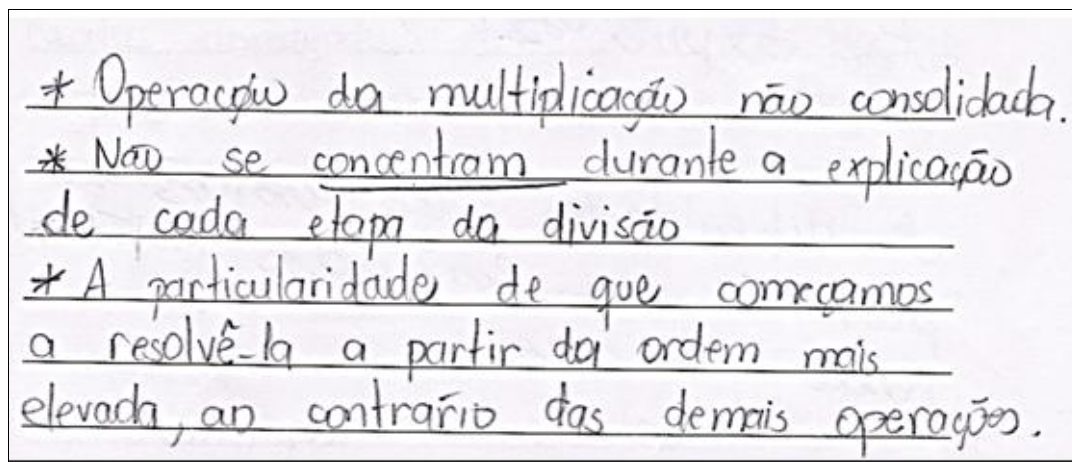 * Operação da multiplicação não consolidada.
* Não se concentram durante a explicação
de cada etapa da divisão
* A particularidade de que começamos
a resolvê-la a partir da ordem mais
elevada, ao contrário das demais operações.